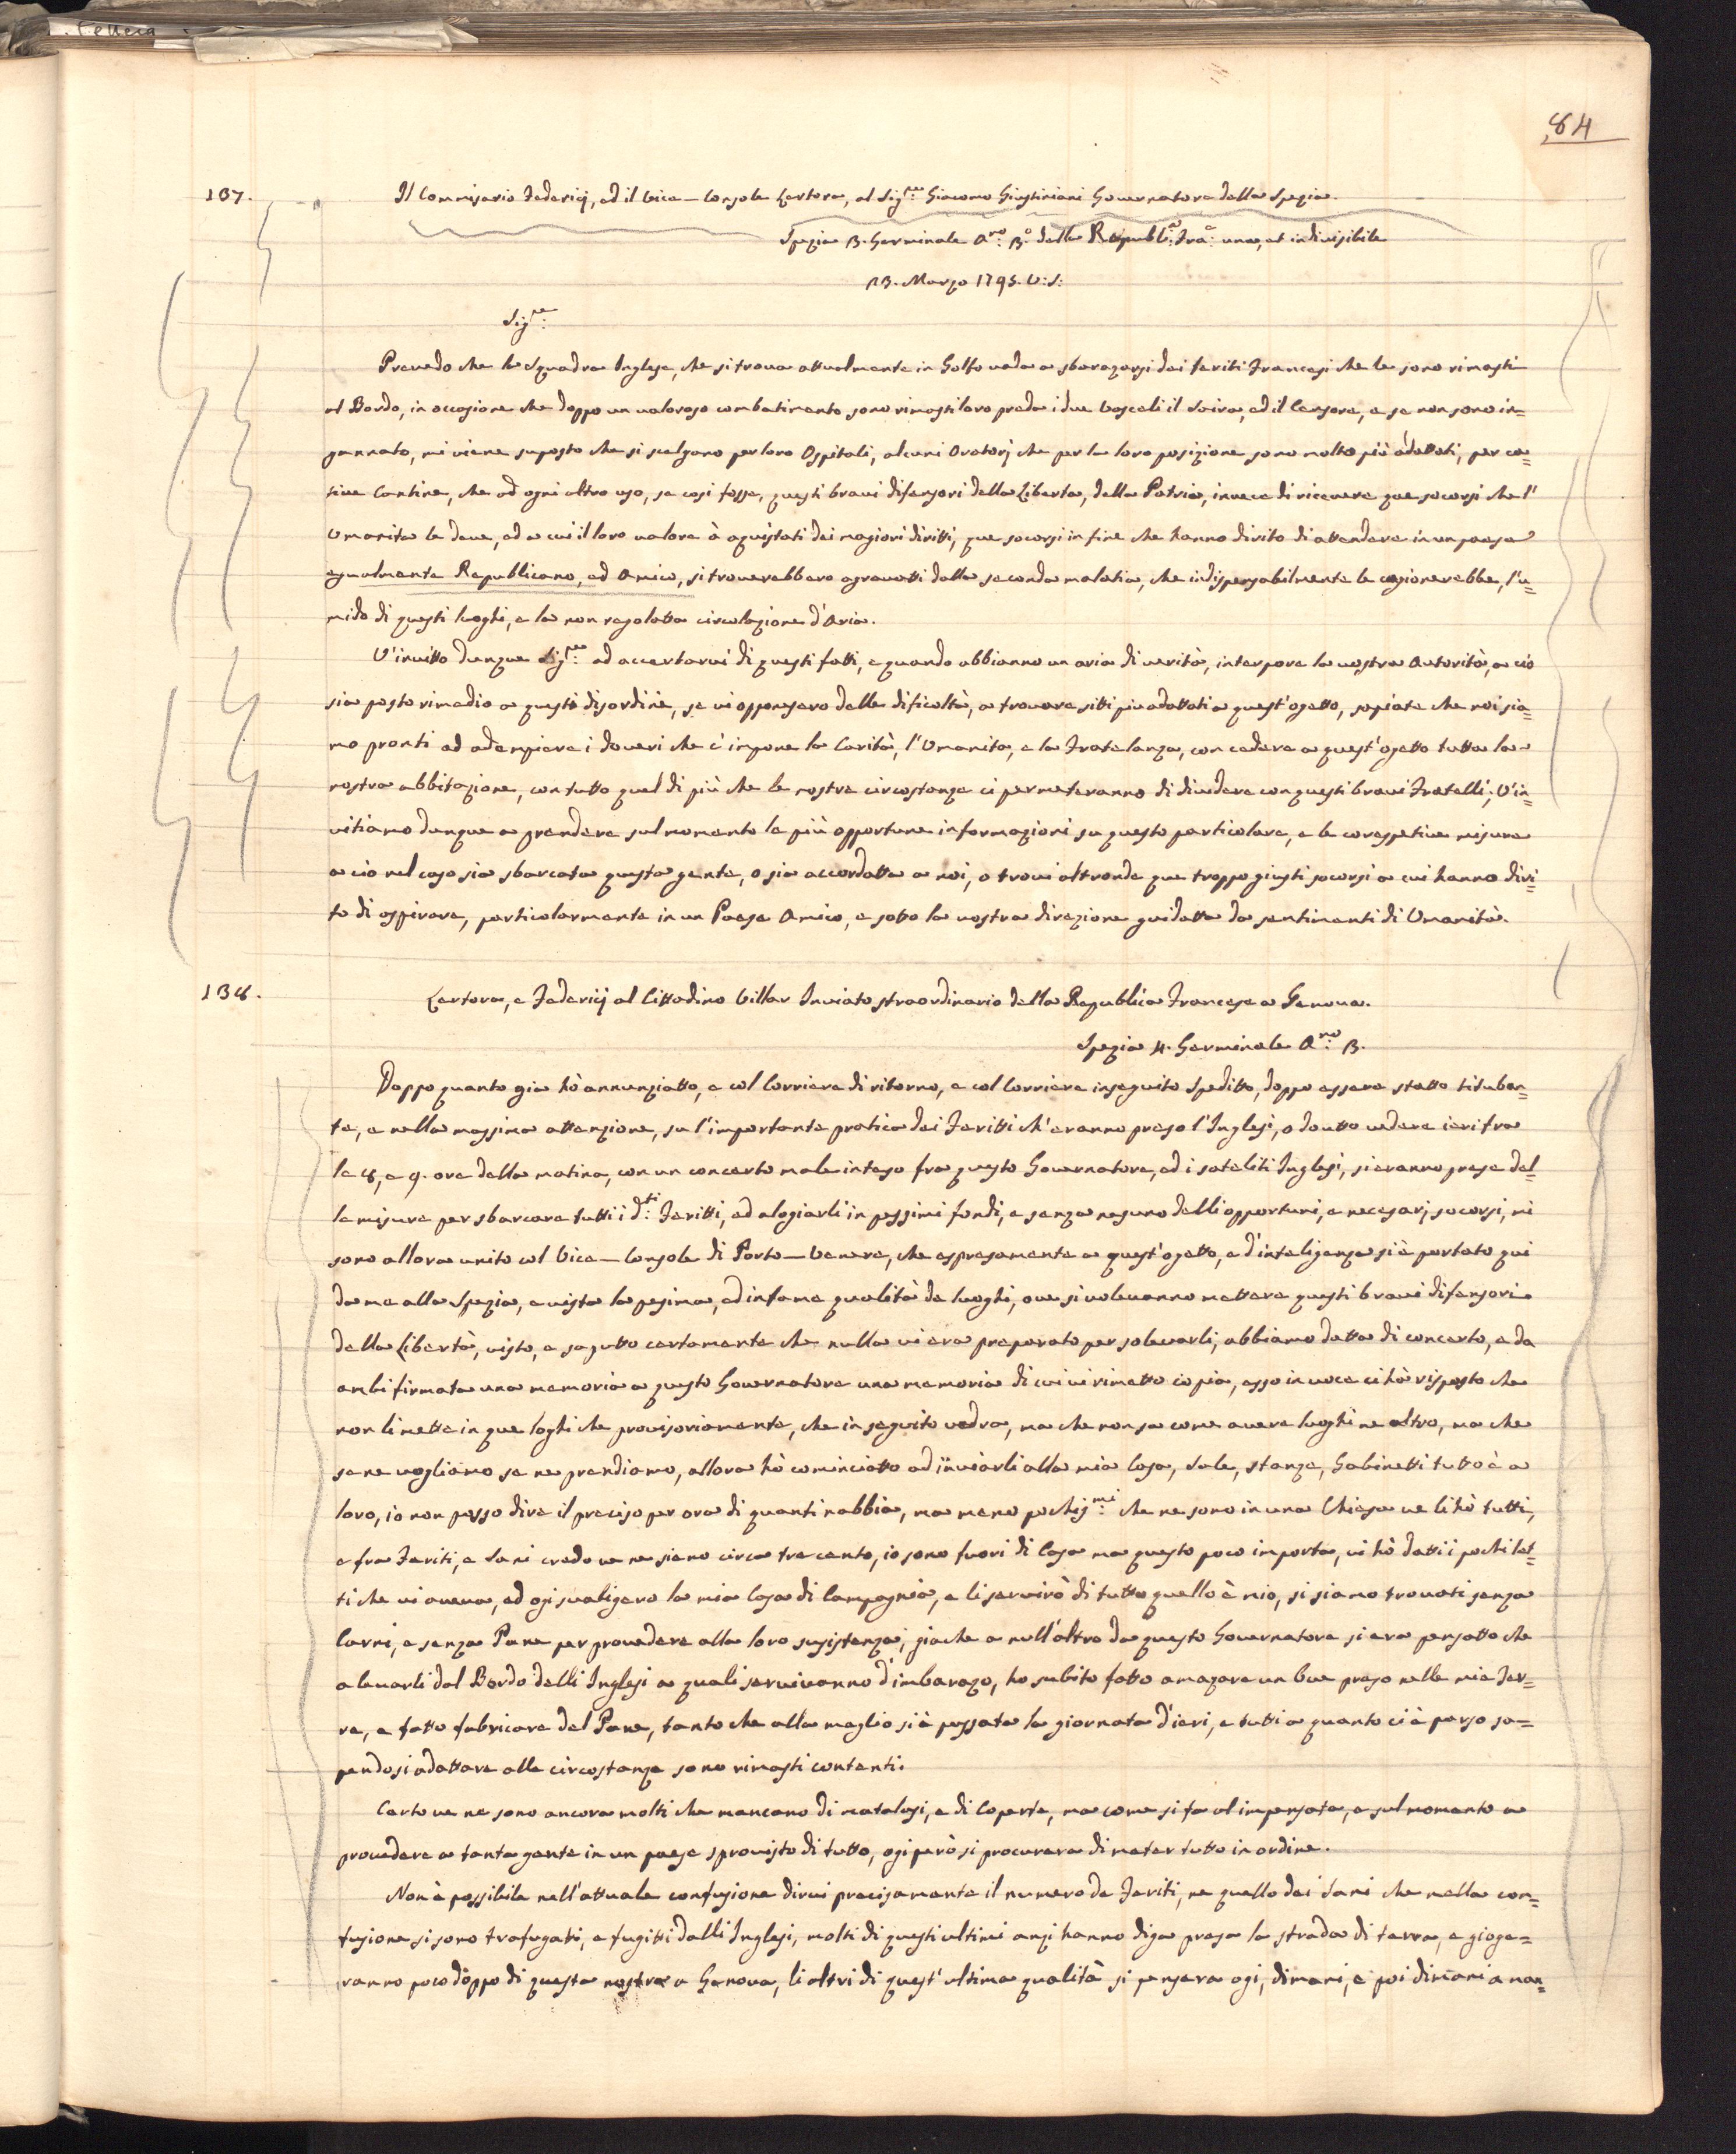 84
137. Il Commisario Federicj, ed il Vice-Console Lertora, al Sig.re Giacomo Giustiniani Governatore della Spezia.
Spezia 3. Germinale A.no 3.o della Republ.a Fra.e una, et indivisibile
23. Marzo 1795. V: S:
Sig.re
Prevedo che la Squadra Inglese, che si trova attualmente in Golfo vada a sbarazarsi dei feriti Francesi che le sono rimasti
al Bordo, in occasione che doppo un valoroso combatimento sono rimasti loro preda i due Vasceli il Saira, ed il Censore, e se non sono in=
gannato, mi viene suposto che si scelgano per loro Ospitali, alcuni Oratorj che per la loro posizione sono molto più adattati, per ca=
tive Cantine, che ad ogni altro uso, se cosi fosse, questi bravi difensori della Libertà, della Patria, invece di ricevere que socorsi che l'
Umanita le deve, ed a cui il loro valore à aquistati dei magiori diritti, que socorsi in fine che hanno dirito di attendere in un paese
egualmente Republicano, ed Amico, si troverebbero agravatti dalla seconda malatia, che indispensabilmente le cagionerebbe, l'u=
mido di questi luoghi, e la non regolatta circolazione d'Aria.
V'invitto dunque Sig.re ad accertarvi di questi fatti, e quando abbianno un aria di verità, interpore la vostra Autorità, a ciò
sia posto rimedio a questi disordini, se vi opponesero delle dificoltà, a trovare sitti più adattati a quest'ogetto, sapiate che noi sia=
mo pronti ad adempiere i doveri che c'impone la Carità, l'Umanita, e la Fratelanza, con cedere a quest'ogetto tutta la
nostra abbitazione, con tutto quel di più che le nostre circostanze ci permeteranno di dividere con questi bravi Fratelli; V'in=
vitiamo dunque a prendere sul momento le più opportune informazioni su questo particolare, e le corespetive misure
a cio nel caso sia sbarcata questa gente, o sia accordatta a noi, o trovi altronde que troppo giusti socorsi a cui hanno diri=
to di aspirare, particolarmente in un Paese Amico, e sotto la vostra direzione guidatta da sentimenti di Umanità.
138. Lertora, e Federicj al Cittadino Villar Inviato straordinario della Republica Francese a Genova.
Spezia 4. Germinale A.no 3.
Doppo quanto gia hò annunziatto, e col Corriere di ritorno, e col Corriere inseguito Speditto, doppo essere statto tituban=
te, e nella massima attenzione, su l'importante pratica dei Feritti ch'eranno preso l'Inglesi, o doutto vedere ieri fra
le 8, e 9. ore della matina, con un concerto male inteso fra questo Governatore, ed i sateliti Inglesi, si eranno prese del=
le misure per sbarcare tutti i d.ti Feritti, ed alogiarli in pessimi fondi, e senza nesuno delli opportuni, e necesarj socorsi, mi
sono allora unito col Vice-Console di Porto-Venere, che espresamente a quest'ogetto, e d'inteligenza si è portato qui
da me alla Spezia, e vista la pesima, ed infame qualità de luoghi, ove si volevanno mettere questi bravi difensori
della Libertà, visto, e saputto certamente che nulla vi era preparato per solevarli, abbiamo datta di concerto, e da
ambi firmata una memoria a questo Governatore una memoria di cui vi rimetto copia, esso in voce ci hà risposto che
non li mette in que loghi che provisoriamente, che in seguito vedra, ma che non sa come avere luoghi ne altro, ma che
se ne vogliamo se ne prendiamo, allora hò cominciatto ad inviarli alla mia Casa, Sale, stanze, Gabinetti tutto è a
loro, io non posso dire il preciso per ora di quanti n'abbia, ma meno pochis.mi che ne sono in una Chiesa ve li hò tutti,
e fra Feriti, e Sani credo ve ne siano circa trecento, io sono fuori di Casa ma questo poco importa, vi hò datti i pochi let=
ti che vi aveva, ed ogi svaligero la mia Casa di Campagnia, e li servirò di tutto quello è mio, si siamo trovati senza
Carni, e senza Pane per provedere alla loro susistenza; giache a null'altro da questo Governatore si era pensatto che
a levarli dal Bordo delli Inglesi a quali servivanno d'imbarazo, ho subito fatto amazare un bue preso nelle mie Ter=
re, e fatto fabricare del Pane, tanto che alla meglio si è passata la giornata d'ieri, e tutti a quanto ci è parso sa=
pendosi adattare alle circostanze sono rimasti contenti.
Certo ve ne sono ancora molti che mancano di matalasi, e di Coperte, ma come si fa al impensata, e sul momento a
provedere a tanta gente in un paese sprovisto di tutto, ogi però si procurera di meter tutto in ordine.
Non è possibile nell'attuale confusione dirvi precisamente il numero de Feriti, ne quello dei Sani che nella con=
fusione si sono trafugati, e fugitti dalli Inglesi, molti di questi ultimi anzi hanno diga presa la strada di terra, e gioge=
ranno poco doppo di questa nostra a Genova, li altri di quest'ultima qualità si pensera ogi, dimani, e poi dimani a man=